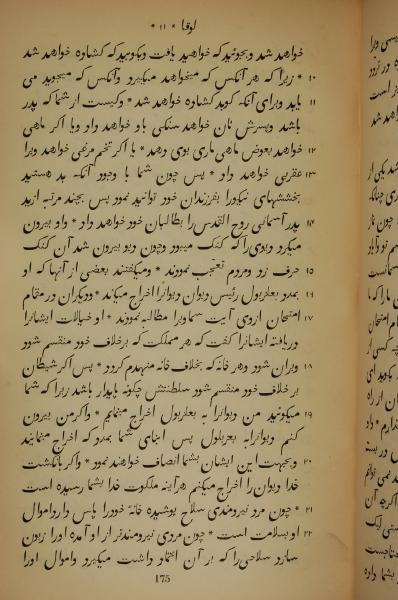 لوقا * ۱۱ *
خواهد شد وبجوئید که خواهید یافت وبکوبید که کشاده خواهد شد
۱۰ * زیرا که هر آنکس که میخواهد میکیرد وآنکس که میجوید می
۱۱ یابد وبرای آنکه کوبد کشاده خواهد شد * وکیست از شما که پدر
باشد وپسرش نان خواهد سنکی باو خواهد داد ویا اکر ماهی
۱۲ خواهد بعوض ماهی ماری بوی دهد * یا اکر تخم مرغی خواهد ویرا
۱۳ عقربی خواهد داد * پس چون شما با وجود آنکه بد هستید
بخششهای نیکورا بفرزندان خود توانید نمود پس بچند مرتبه ازید
۱۴ پدر آسمانی روح القدس را بطالبان خود خواهد داد * واو بیرون
میکرد دیوی را که کنک میبود وچون دیو بیرون شد آن کنک
۱۵ حرف زد ومردم تعجب نمودند * ومیکفتند بعضی از آنها که او
۱۶ بمدد بعلزبول رئیس دیوان دیوانرا اخراج میکند * ودیکران در مقام
۱۷ امتحان ازوی آیت سماویرا مطالبه نمودند * او خیالات ایشانرا
دریافته ایشانرا کفت که هر مملکت که برخلاف خود منقسم شود
۱۸ ویران شود وهر خانه که بخلاف خانه منهدم کردد * پس اکر شیطان
برخلاف خود منقسم شود سلطنتش چکونه پایدار باشد زیرا که شما
۱۹ میکوئید من دیوانرا به بعلزبول اخراج مینمایم * واکر من بیرون
کنم دیوانرا به بعلزبول پس ابنای شما بمدد که اخراج مینمایند
۲۰ وبجهت این ایشان بشما انصاف خواهند نمود * واکر بانکشت
خدا دیوان را اخراج میکنم هرآینه ملکوت خدا بشما رسیده است
۲۱ * چون مرد نیرومندی سلاح پوشیده خانهٔ خودرا پاس دارد اموال
۲۲ او بسلامت است * چون مردی نیرومندتر از او آمده اورا زبون
سازد سلاحی را که بر آن اعتماد داشت میکیرد واموال اورا
175